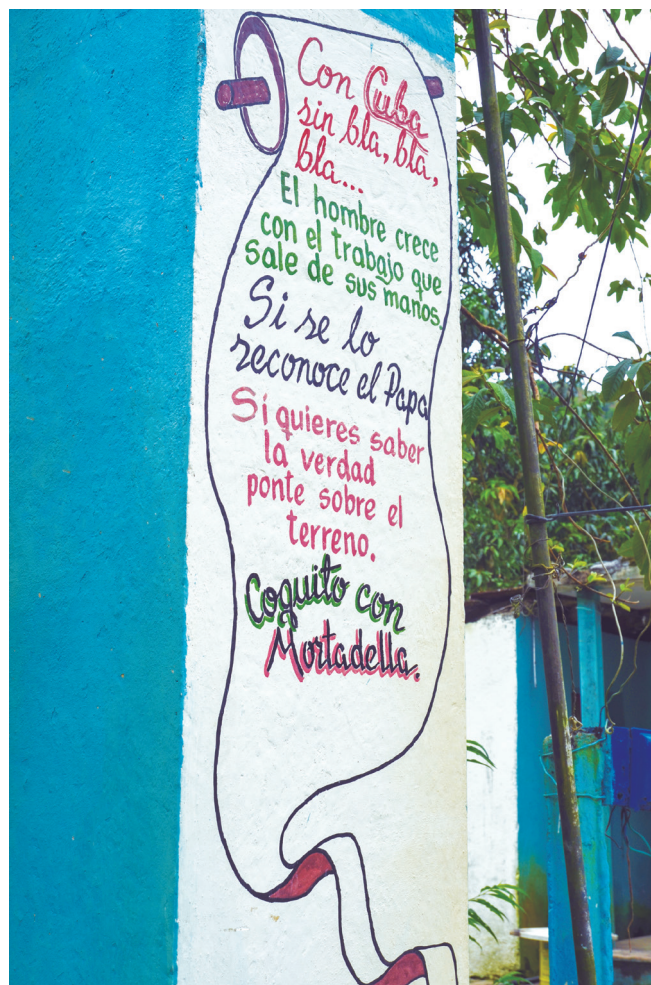 Con Cuba
sin bla, bla,
bla...
El hombre crece
con el trabajo que
sale de sus manos.
Si se lo
reconoce el Papa
Sí quieres saber
la verdad
ponte sobre el
terreno.
Coquito con
Mortadella.